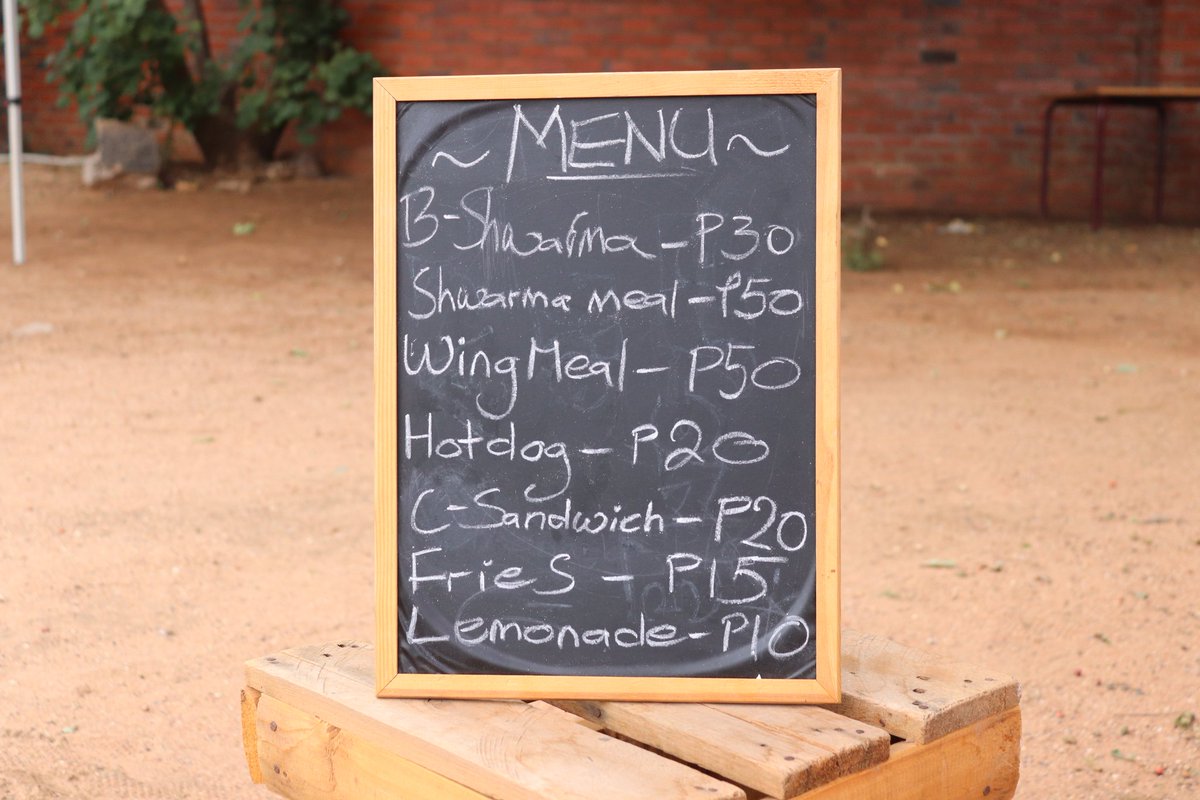 ~ MENU ~
B-Shwarma - P30
Shwarma meal - P50
Wing Meal - P50
Hotdog - P20
C-Sandwich - P20
Fries - P15
Lemonade - P10